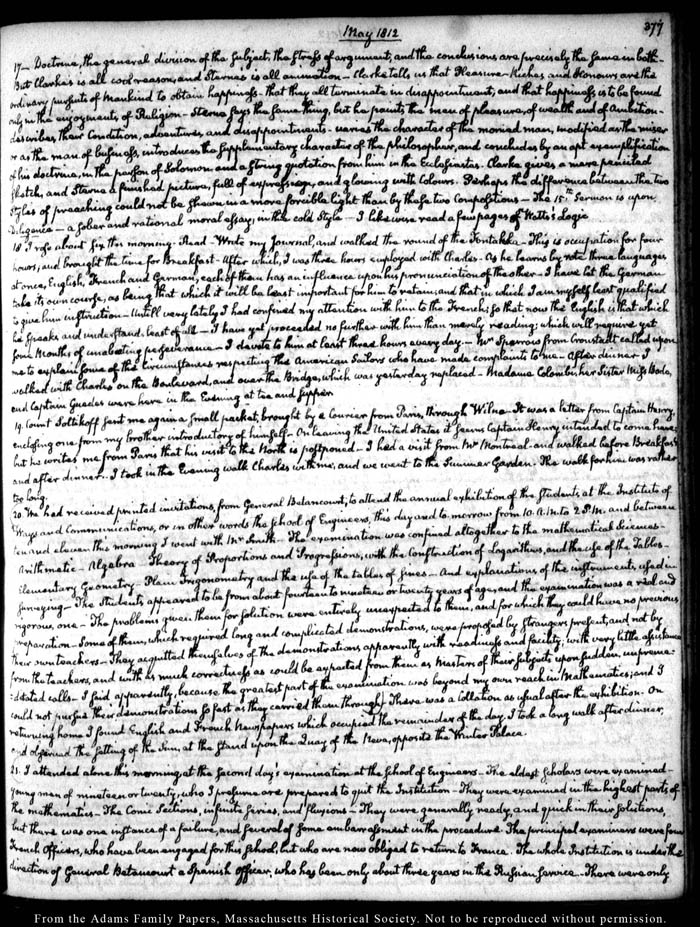 May 1812
377
17— Doctrine, the general division of the subject, the stress of argument, and the conclusions, are precisely the same in both.
But Clarke's is all cool reason, and Sterne's is all animation — Clarke tells us that Pleasure, Riches, and Honours are the
ordinary pursuits of Mankind to obtain happiness — that they all terminate in disappointment, and that happiness is to be found
only in the enjoyments of Religion — Sterne says the same thing, but he paints the man of pleasure, of wealth and of Ambition —
describes their Condition, adventures, and disappointments — varies the character of the monied man, modified as the miser
or as the man of business, introduces the supplementary character of the philosopher, and concludes by an apt exemplification
of his doctrine, in the person of Solomon and a strong quotation from him in the Ecclesiastes. Clarke gives a mere penciled
sketch, and Sterne a finished picture, full of expression, and glowing with Colours. Perhaps the difference between the two
styles of preaching could not be shewn in a more forcible light than by these two Compositions — The 15th Sermon is upon
Diligence — a sober and rational moral essay, in the cold Style — I likewise read a few pages of Watts's Logic
18. I rose about six this morning. Read — Wrote my Journal, and walked the round of the Fontakka — This is occupation for four
hours, and brought the time for Breakfast — After which, I was three hours employed with Charles — As he learns by rote three languages
at once, English, French and German, each of them has an influence upon his pronunciation of the other — I have let the German
take its own course, as being that which it will be least important for him to retain, and that in which I am myself least qualified
to give him instruction — Untill very lately I had confined my attention with him to the French; so that now the English is that which
he speaks and understands least of all — I have yet proceeded no further with him than merely reading; which will require yet
four Months of unabating perseverance — I devote to him at least three hours every day — Mr Sparrow from Cronstadt called upon
me to explain some of the circumstances respecting the American Sailors who have made complaints to me — After dinner I
walked with Charles on the Boulevard, and over the Bridge, which was yesterday replaced — Madame Colombi, her Sister Miss Bode,
and Captain Guedes were here in the Evening at tea and supper
19. Count Soltikoff sent me again a small packet, brought by a Courier from Paris, through Wilna — It was a letter from Captain Henry,
enclosing one from my brother introductory of himself — On leaving the United States it seems Captain Henry intended to come here;
but he writes me from Paris that his visit to the North is postponed — I had a visit from Mr Montreal and walked before Breakfast
and after dinner. I took in the Evening walk Charles with me, and we went to the Summer Garden. The walk for him was rather
too long.
20. We had received printed invitations, from General Betancourt, to attend the annual exhibition of the students, at the Institute of
Ways and Communications, or in other words the school of Engineers, this day and to morrow from 10. A.M. to 2. P.M. and between
ten and eleven this morning I went with Mr Smith — The examination was confined altogether to the mathematical Sciences —
Arithmetic — Algebra — Theory of Proportions and Progressions, with the Construction of Logarithms, and the use of the Tables —
Elementary Geometry — Plain Trigonometry and the use of the tables of sines — And explanations of the instruments, used in
surveying — The Students appeared to be from about fourteen to nineteen or twenty years of age; and the examination was a real and
rigorous, one — The problems given them for solution were entirely unexpected to them, and for which they could have no previous
preparation — Some of them, which required long and complicated demonstrations, were proposed by strangers present, and not by
their own teachers — They acquitted themselves of the demonstrations apparently with readiness and facility, with very little assistance
from the teachers, and with as much correctness as could be expected from them as Masters of their subjects upon sudden, unpreme-
ditated calls. I said apparently, because the greatest part of the examination was beyond my own reach in Mathematics; and I
could not pursue their demonstrations so fast as they carried them through. There was a Collation as usual after the exhibition. On
returning home I found English and French Newspapers which occupied the remainder of the day. I took a long walk after dinner,
and observed the setting of the Sun, at the stand upon the Quay of the Neva, opposite the Winter Palace.
21. I attended alone this morning, at the second day's examination at the school of Engineers — The eldest scholars were examined —
young men of nineteen or twenty, who I presume are prepared to quit the Institution — They were examined in the highest parts of
the mathematics — The Conic Sections, infinite series, and fluxions — They were generally ready, and quick in their solutions,
but there was one instance of a failure, and several of some embarrassment in the procedure. The principal examiners were four
French Officers, who have been engaged for this school, but who are now obliged to return to France. The whole Institution is under the
direction of General Betancourt a Spanish Officer, who has been only about three years in the Russian service — There were only
From the Adams Family Papers, Massachusetts Historical Society. Not to be reproduced without permission.